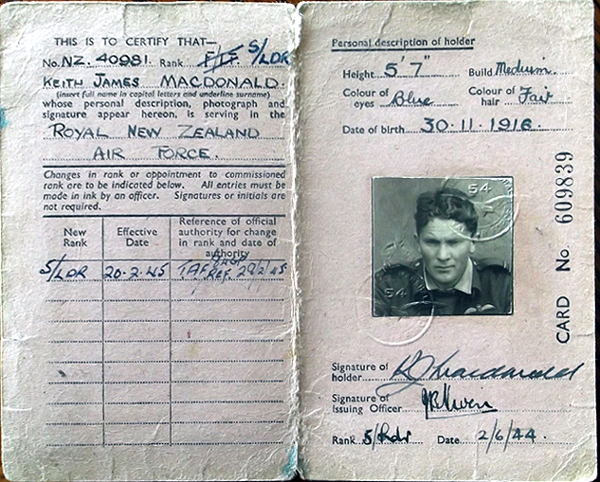 THIS IS TO CERTIFY THAT—
No. NZ. 40981. Rank F/LT. S/LDR
KEITH JAMES MACDONALD.
(insert full name in capital letters and underline surname)
whose personal description, photograph and
signature appear hereon, is serving in the
ROYAL NEW ZEALAND
AIR FORCE.
Changes in rank or appointment to commissioned
rank are to be indicated below. All entries must be
made in ink by an officer. Signatures or initials are
not required.
New Rank
Effective Date
Reference of official authority for change in rank and date of authority
S/LDR 20.2.45 REF. 20/2/45
Personal description of holder
Height 5' 7" Build Medium.
Colour of eyes Blue Colour of hair Fair
Date of birth 30.11.1916
54
54
CARD No. 609839
Signature of holder KJ Macdonald
Signature of Issuing Officer
Rank S/Ldr Date 2/6/44.